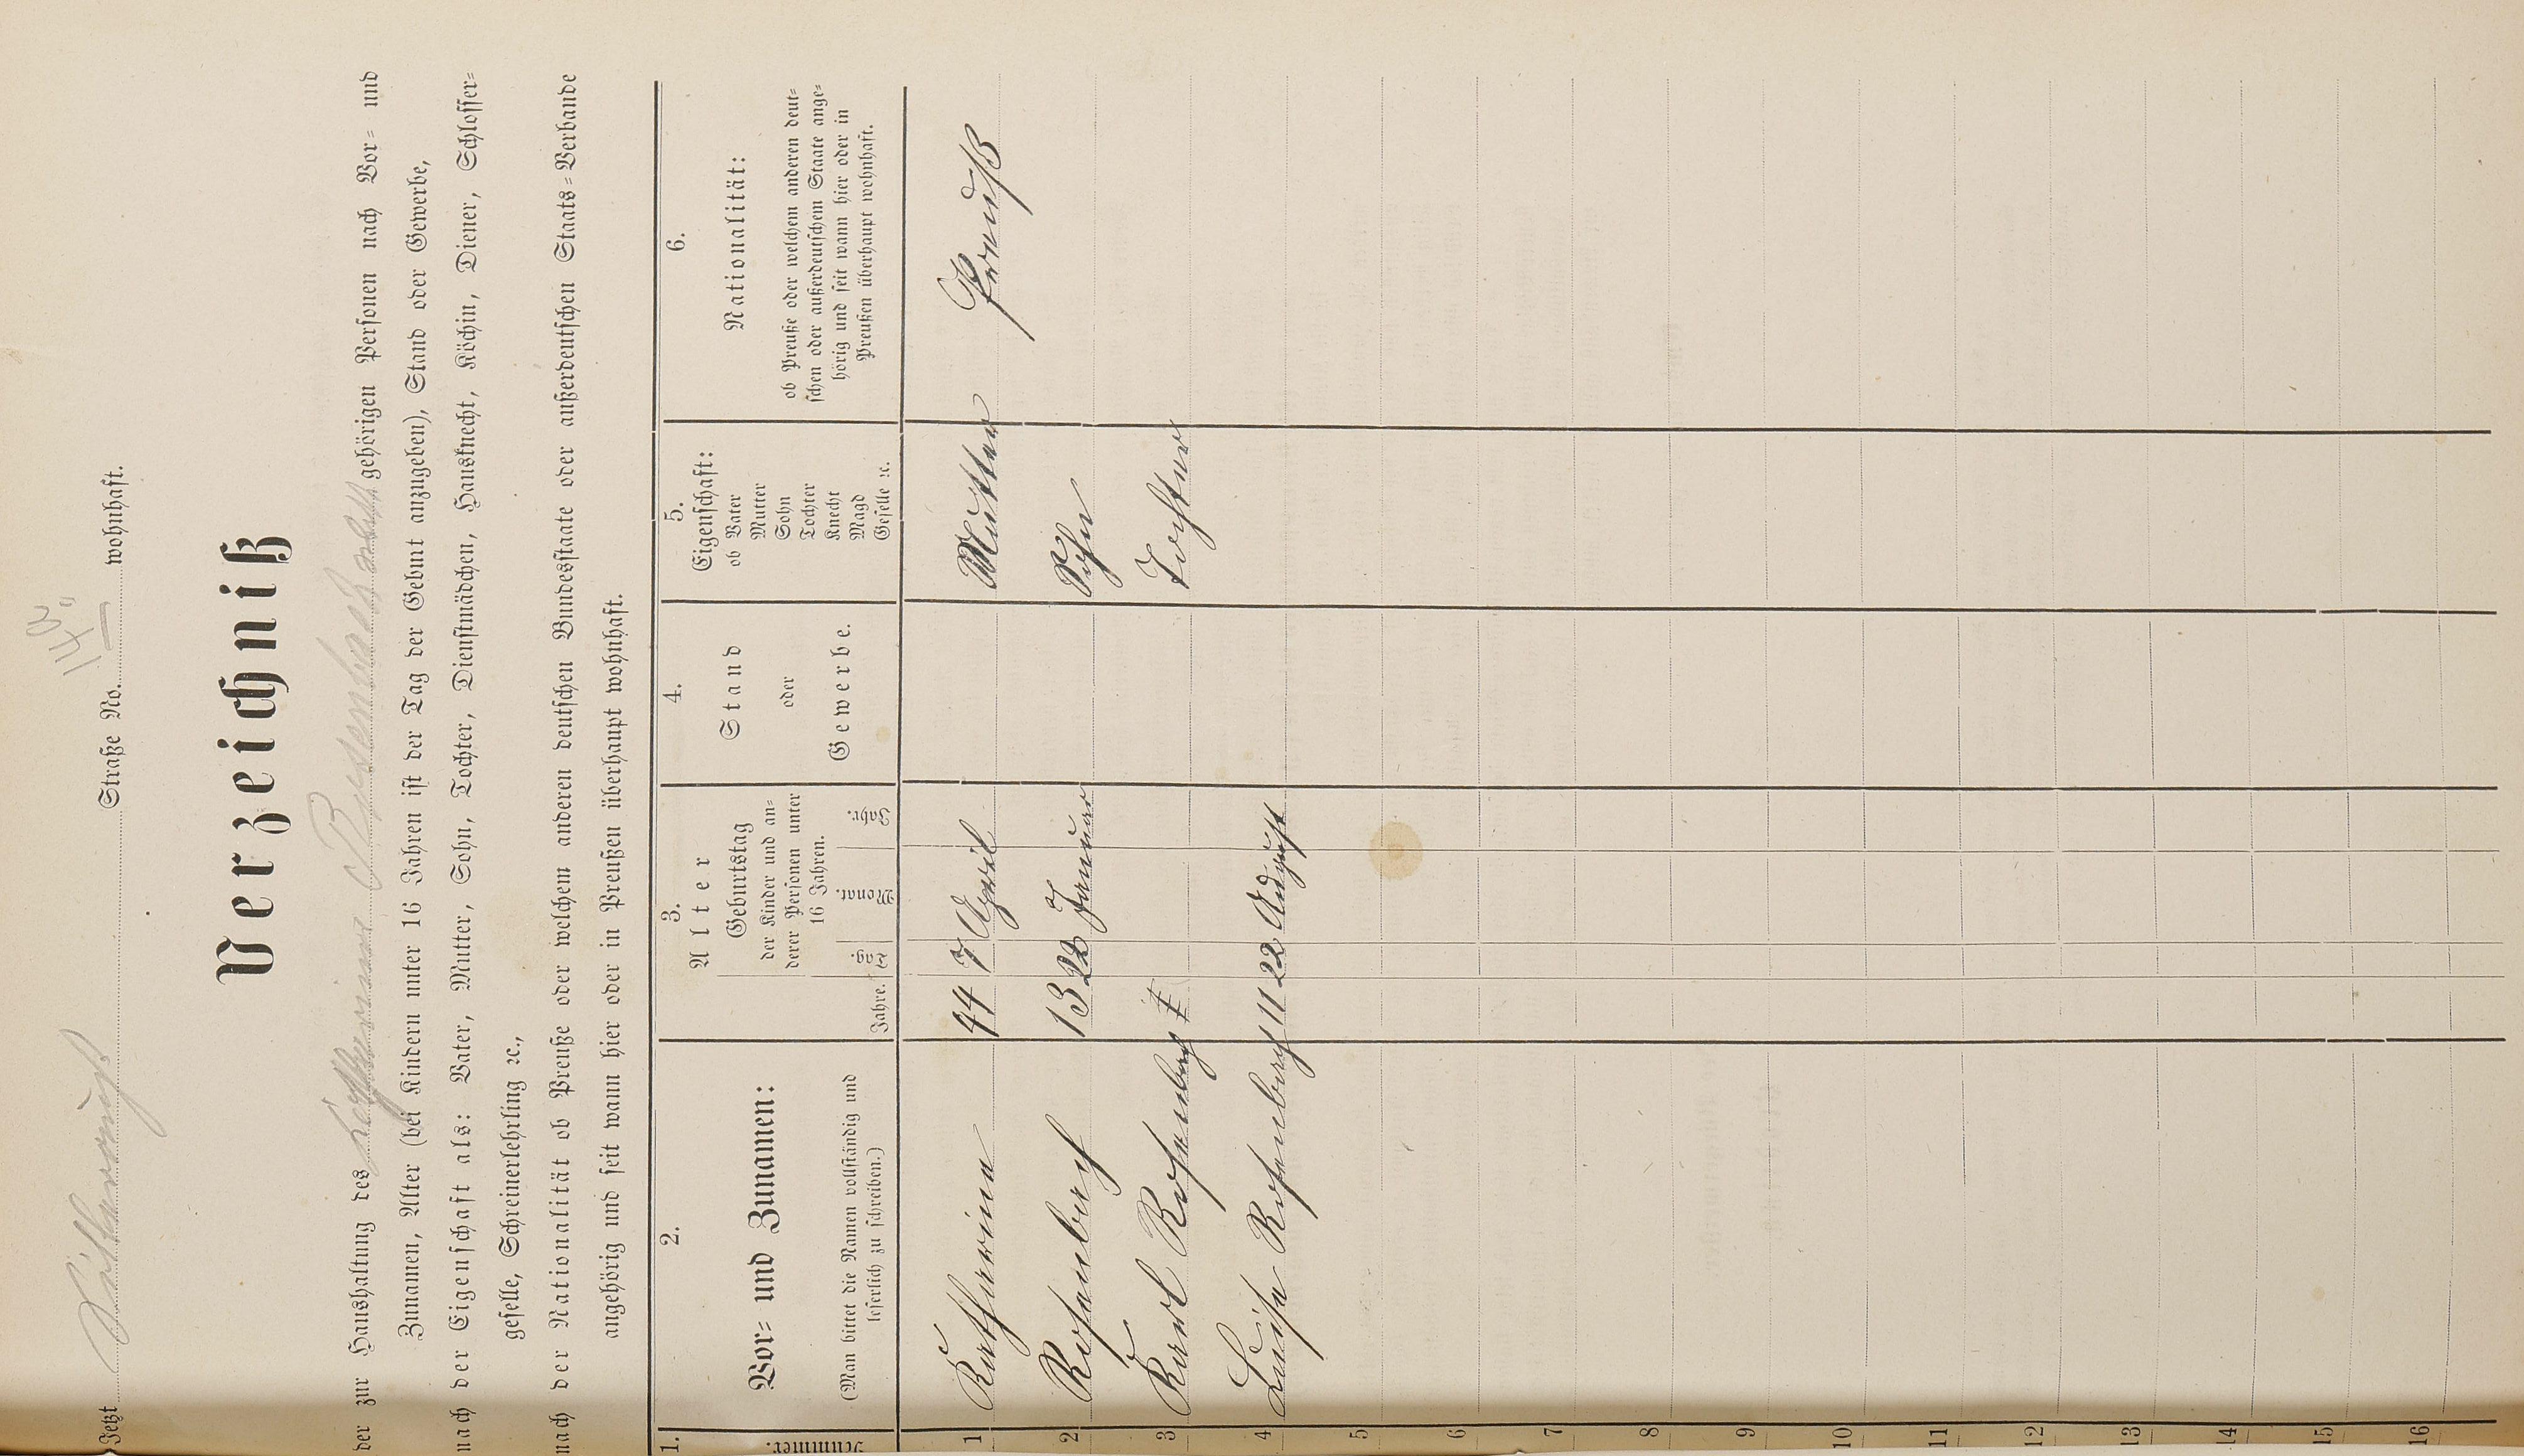 Jetzt Süsterauf Straße No. 140. wohnhaft.
Verzeichniß
der zur Haushaltung des Katharina Rosenbach gehörigen Personen nach Vor- und
Zunamen, Alter (bei Kindern unter 16 Jahren ist der Tag der Geburt anzugeben), Stand oder Gewerbe,
nach der Eigenschaft als: Vater, Mutter, Sohn, Tochter, Dienstmädchen, Hausknecht, Köchin, Diener, Schlosser-
geselle, Schreinerlehrling ꝛc.,
nach der Nationalität ob Preuße oder welchem anderen deutschen Bundesstaate oder außerdeutschen Staats-Verbande
angehörig und seit wann hier oder in Preußen überhaupt wohnhaft.
1. 2. 3. 4. 5. 6.
Nummer.
Vor- und Zunamen:
(Man bittet die Namen vollständig und
leserlich zu schreiben.)
Alter
Jahre.
Geburtstag
der Kinder und an-
derer Personen unter
16 Jahren.
Tag. Monat. Jahr.
Stand
oder
Gewerbe.
Eigenschaft:
ob Vater
Mutter
Sohn
Tochter
Knecht
Magd
Geselle ꝛc.
Nationalität:
ob Preuße oder welchem anderen deut-
schen oder außerdeutschem Staate ange-
hörig und seit wann hier oder in
Preußen überhaupt wohnhaft.
1 Katharina 44 7 April Mutter Preuß
2 Rosenbach 13 22 Januar Sohn
3 Karl Rosenbach Tochter
4 Luise Rosenbach 11 22 August
5
6
7
8
9
10
11
12
13
14
15
16